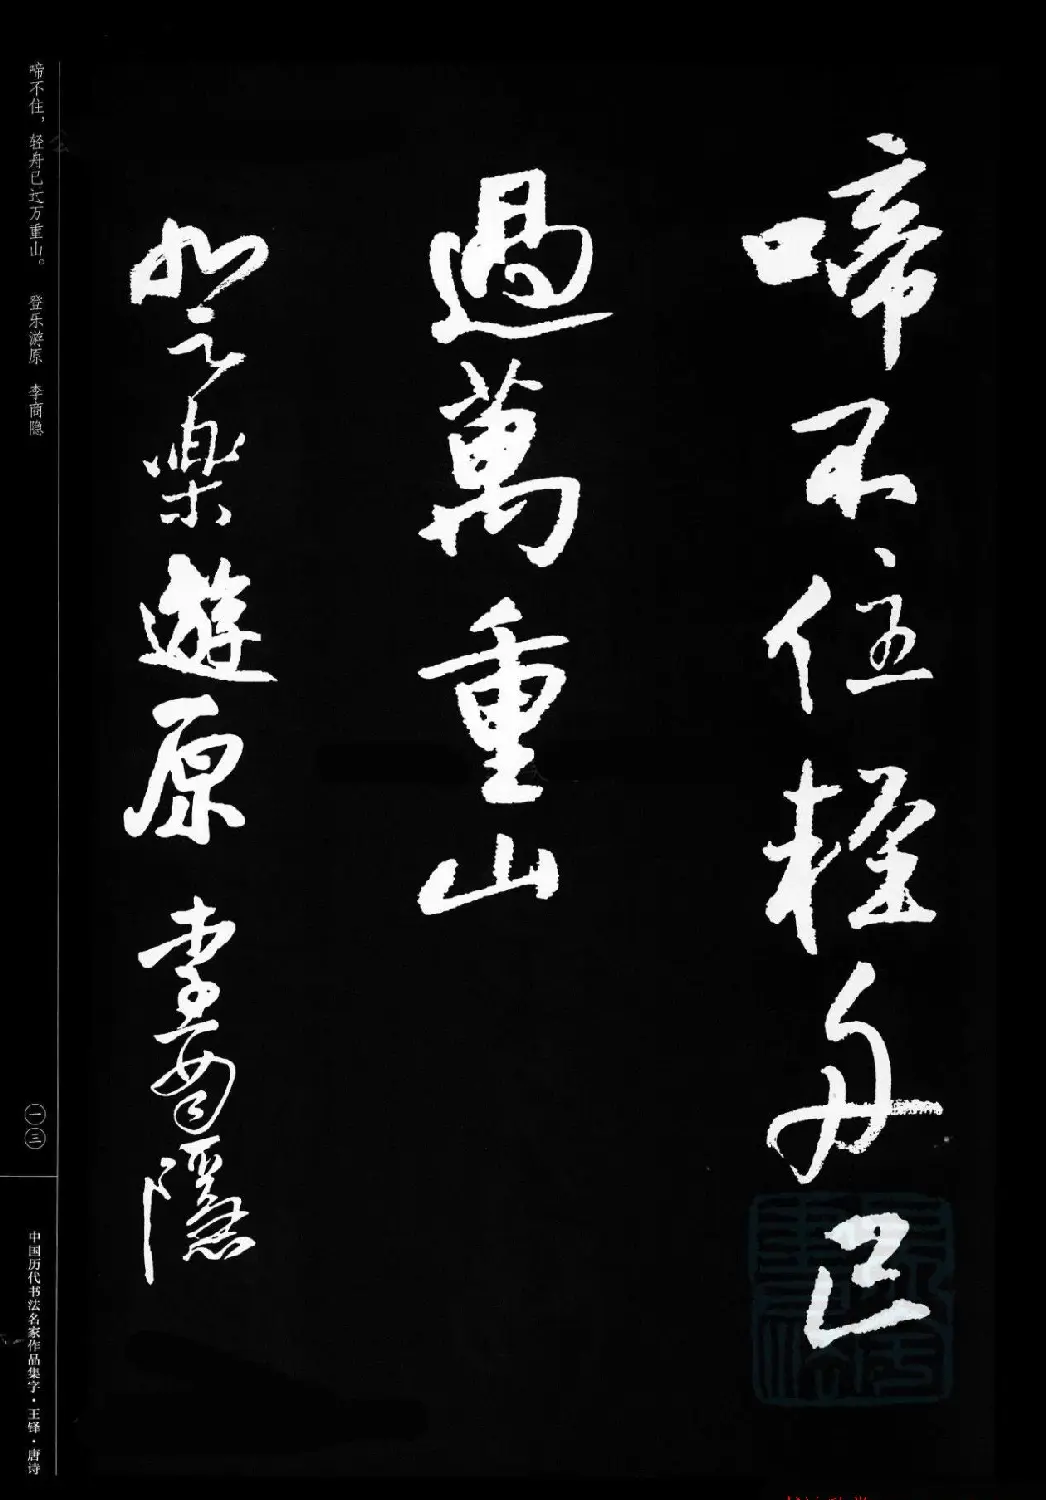 啼不住輕舟已
過萬重山
登樂遊原 李商隱
啼不住，轻舟已过万重山。 登乐游原 李商隐
一三
中国历代书法名家作品集字·王铎·唐诗